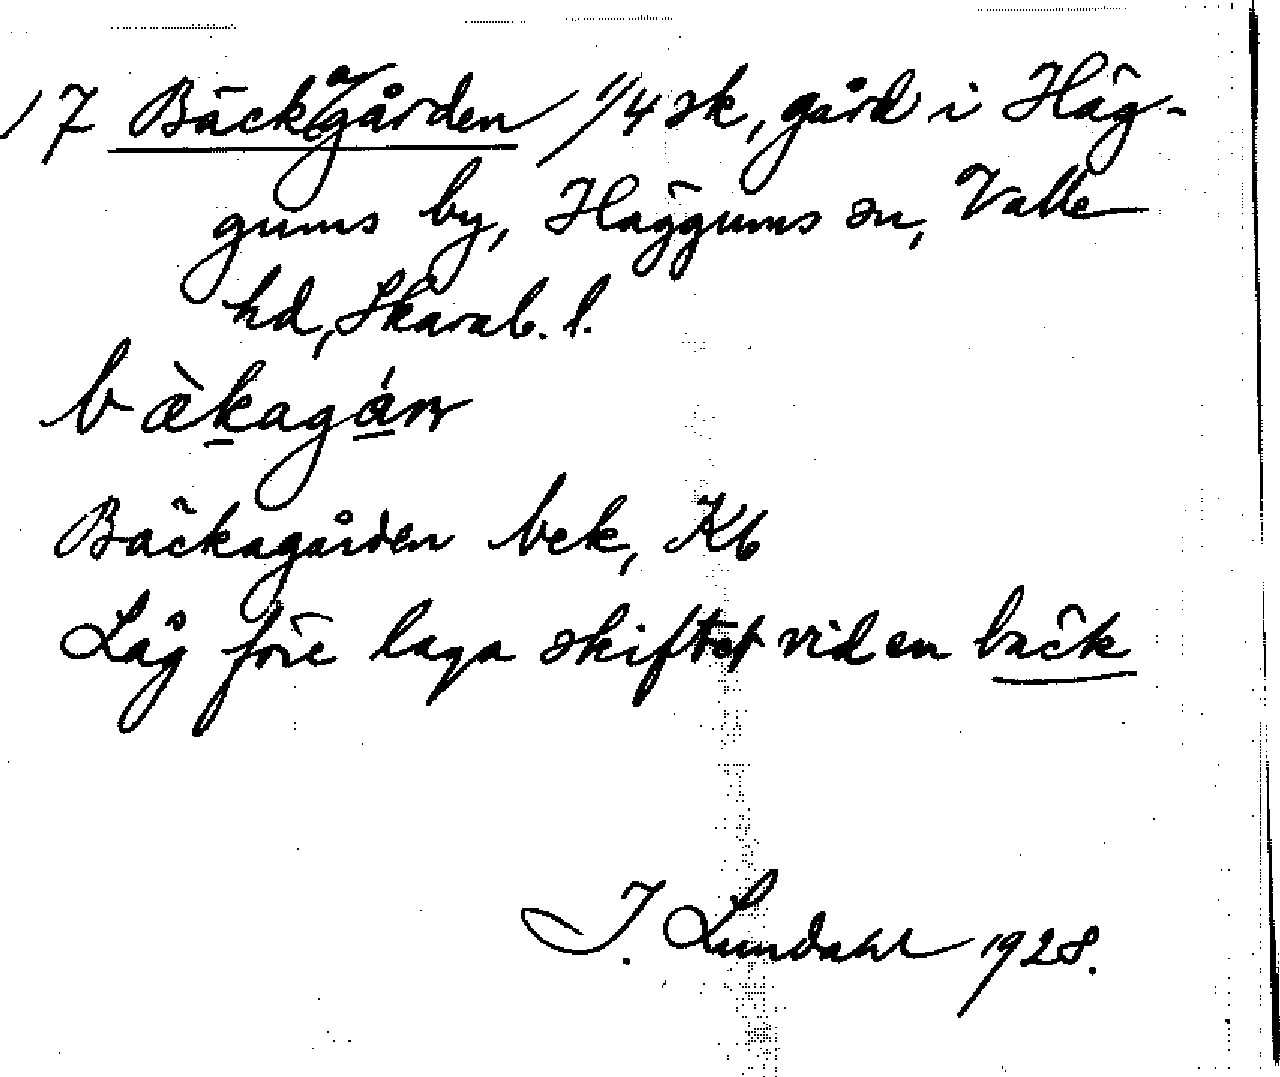 17 Bäckagården 1/4 sk, gård i Häg-
gums by, Häggums sn, Valle
hd, Skarab. l.
bækagárn
Bäckagården bek, Kb
Låg före laga skiftet vid en bäck
I. Lundahl 1928.